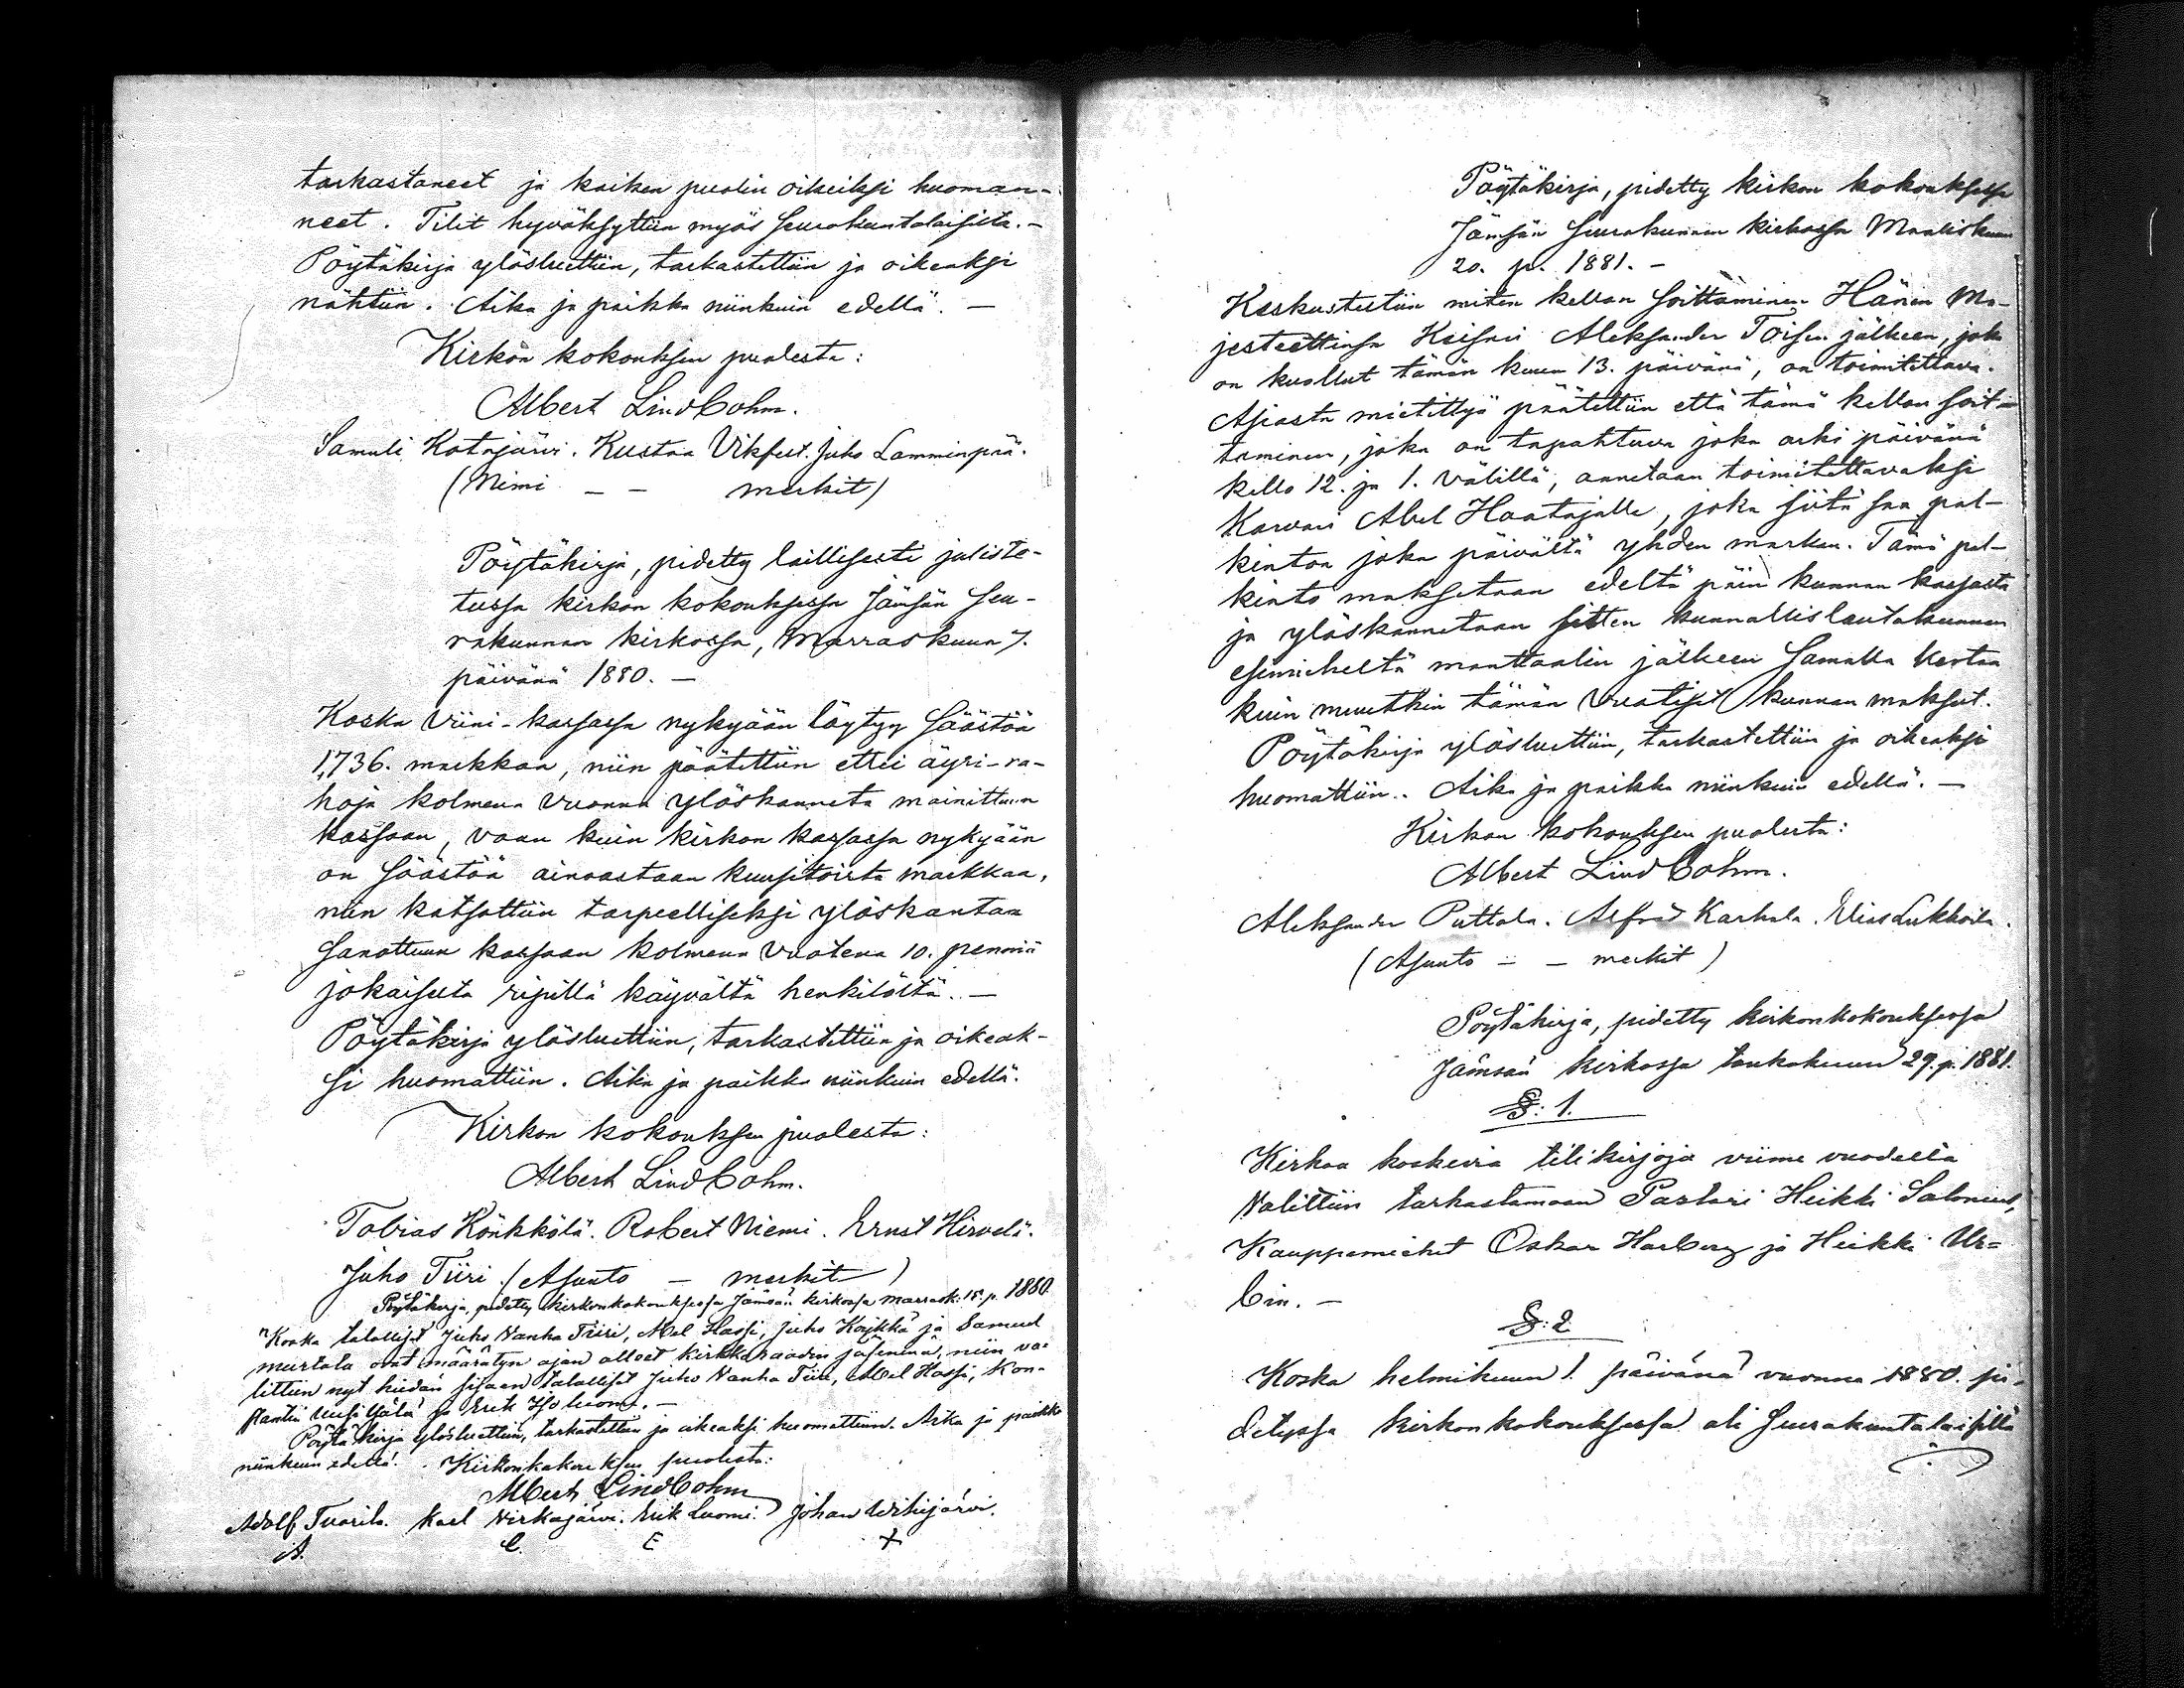 tarkastaneet ja kaiken puolin oikeiksi huoman-
neet. Tilit hyväksyttiin myös seurakuntalaisilta. -
Pöytäkirja ylösluettiin, tarkastettiin ja oikeaksi
nähtiin. Aika ja paikka niinkuin edellä. -
Kirkon kokouksen puolesta:
Albert Lindbohm.
Samuli Kotajärvi. Kustaa Vikfest. Juho Lamminpää.
(Nimi - - merkit)
Pöytäkirja, pidetty laillisesti juliste-
tussa kirkon kokouksessa Jämsän seu-
rakunnan kirkossa, Marraskuun 7.
päivänä 1880. -
Koska viini-kassassa nykyään löytyy säästöä
1,736. markkaa, niin päätettiin ettei äyri-ra-
hoja kolmena vuonna ylöskanneta mainittuun
kassaan, vaan kuin kirkon kassassa nykyään
on säästöä ainoastaan kuusitoista markkaa,
niin katsottiin tarpeelliseksi ylöskantaa
sanottuun kassaan kolmena vuotena 10. penniä
jokaiselta ripillä käyvältä henkilöltä. -
Pöytäkirja ylösluettiin, tarkastettiin ja oikeak-
si huomattiin. Aika ja paikka niinkuin edellä.
Kirkon kokouksen puolesta:
Albert Lindbohm.
Tobias Könkkölä. Robert Niemi. Ernst Hirvelä.
Juho Tiiri. (Asunto - merkit)
Pöytäkirja, pidetty kirkonkokouksessa Jämsän kirkossa marrask: 15 p. 1880.
"Koska talolliset Juho Vanha Tiiri, Abel Hassi, Juho Kaikka ja Samuel
murtala ovat määrätyn ajan olleet kirkkoraadin jäseninä, niin va-
littiin nyt heidän sijaan talolliset Juho Vanha Tiiri, Abel Hassi, Kon-
stantin Uusi ja Erik Isoluomi. -
Pöytäkirja ylösluettiin, tarkastettiin ja oikeaksi huomattiin. Aika ja paikka
niinkuin edellä. Kirkonkokouksen puolesta:
Albert Lindbohm
Adolf Tuorila. Karl Virkajärvi. Erik Luomi. Johan Wihijärvi.
A. C. E +
Pöytäkirja, pidetty kirkon kokouksessa
Jämsän seurakunnan kirkossa Maaliskuun
20. p. 1881. -
Keskusteltiin miten kellon soittaminen Hänen Ma-
jesteettinsa Keisari Aleksander Toisen jälkeen, joka
on kuollut tämän kuun 13. päivänä, on toimitettava.
Asiasta mietittyä päätettiin että tämä kellon soit-
taminen, joka on tapahtuva joka arki päivänä
kello 12. ja 1. välillä, annetaan toimitettavaksi
Karvari Abel Haatajalle, joka siitä saa pal-
kintoa joka päivältä yhden markan. Tämä pal-
kinto maksetaan edeltä päin kunnan kassasta
ja ylöskannetaan sitten kunnallislautakunnan
esimieheltä manttaalin jälkeen samalla kertaa
kuin muutkin tämän vuotiset kunnan maksut.
Pöytäkirja ylösluettiin, tarkastettiin ja oikeaksi
huomattiin. Aika ja paikka niinkuin edellä. -
Kirkon kokouksen puolesta:
Albert Lindbohm.
Aleksander Puttola. Alfred Karhula. Elias Lukkoila.
(Asunto - - merkit)
Pöytäkirja, pidetty kirkonkokouksessa
Jämsän kirkossa toukokuun 29. p. 1881.
§: 1.
Kirkon koskevia tilikirjoja viime vuodelta
valittiin tarkastamaan Pastori Heikki Salonius,
Kauppamiehet Oskar Harberg ja Heikki Ur=
bin. -
§: 2
Koska helmikuun 1. päivänä vuonna 1880. pi-
detyssä kirkonkokouksessa oli seurakuntalaisilta